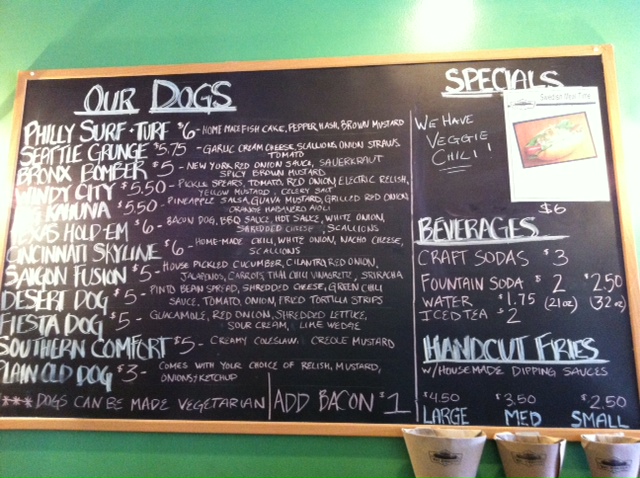 OUR DOGS
PHILLY SURF·TURF $6 - HOMEMADE FISH CAKE, PEPPER HASH, BROWN MUSTARD
SEATTLE GRUNGE $5.75 - GARLIC CREAM CHEESE, SCALLIONS, ONION STRAWS, TOMATO
BRONX BOMBER $5 - NEW YORK RED ONION SAUCE, SAUERKRAUT
SPICY BROWN MUSTARD
WINDY CITY $5.50 - PICKLE SPEARS, TOMATO, RED ONION, ELECTRIC RELISH,
YELLOW MUSTARD, CELERY SALT
KAHUNA $5.50 - PINEAPPLE SALSA, GUAVA MUSTARD, GRILLED RED ONION
ORANGE HABANERO AIOLI
TEXAS HOLD-EM $6 - BACON DOG, BBQ SAUCE, HOT SAUCE, WHITE ONION,
SHREDDED CHEESE, SCALLIONS
CINCINNATI SKYLINE $6 - HOME-MADE CHILI, WHITE ONION, NACHO CHEESE,
SCALLIONS
SAIGON FUSION $5 - HOUSE PICKLED CUCUMBER, CILANTRO, RED ONION,
JALAPENOS, CARROTS, THAI CHILI VINAGRETTE, SRIRACHA
DESERT DOG $5 - PINTO BEAN SPREAD, SHREDDED CHEESE, GREEN CHILI
SAUCE, TOMATO, ONION, FRIED TORTILLA STRIPS
FIESTA DOG $5 - GUACAMOLE, RED ONION, SHREDDED LETTUCE,
SOUR CREAM, LIME WEDGE
SOUTHERN COMFORT $5 - CREAMY COLESLAW, CREOLE MUSTARD
PLAIN OLD DOG $3 - COMES WITH YOUR CHOICE OF RELISH, MUSTARD,
ONIONS, KETCHUP
*** DOGS CAN BE MADE VEGETARIAN
ADD BACON $1
SPECIALS
WE HAVE
VEGGIE
CHILI!
$6
BEVERAGES
CRAFT SODAS $3
FOUNTAIN SODA $2 $2.50
WATER $1.75 (21oz) (32oz)
ICED TEA $2
HANDCUT FRIES
W/HOUSEMADE DIPPING SAUCES
$4.50 $3.50 $2.50
LARGE MED SMALL